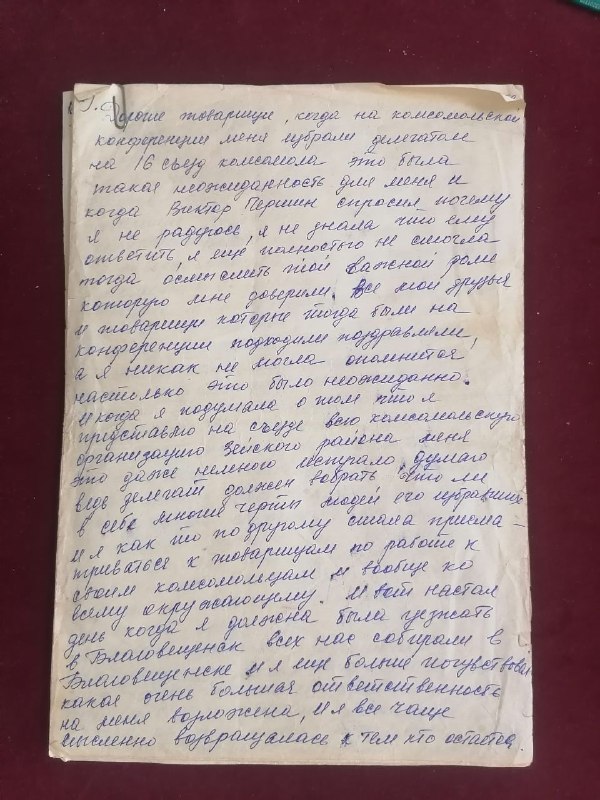 Дорогие товарищи, когда на комсомольской
конференции меня избрали делегатом
на 16 съезд комсомола это была
такая неожиданность для меня и
когда Виктор Першин спросил почему
я не радуюсь, я не знала что ему
ответить, я еще полностью не смогла
тогда осмыслить той важной роли
которую мне доверили. Все мои друзья
и товарищи которые тогда были на
конференции подходили поздравляли,
а я никак не могла опомнится,
настолько это было неожиданно.
И когда я подумала о том что я
представлю на съезде всю комсомольскую
организацию Зейского района меня
это даже немного испугало, думаю
ведь делегат должен вобрать что ли
в себя многие черты людей его избравших
и я как то по другому стала присма-
триваться к товарищам по работе к
своим комсомольцам и вообще ко
всему окружающему. И вот настал
день когда я должна была уезжать
в Благовещенск всех нас собирали в
Благовещенске и я еще больше почувствовала
какая очень большая ответственность
на меня возложена, и я все чаще
мысленно возвращалась к тем кто остается